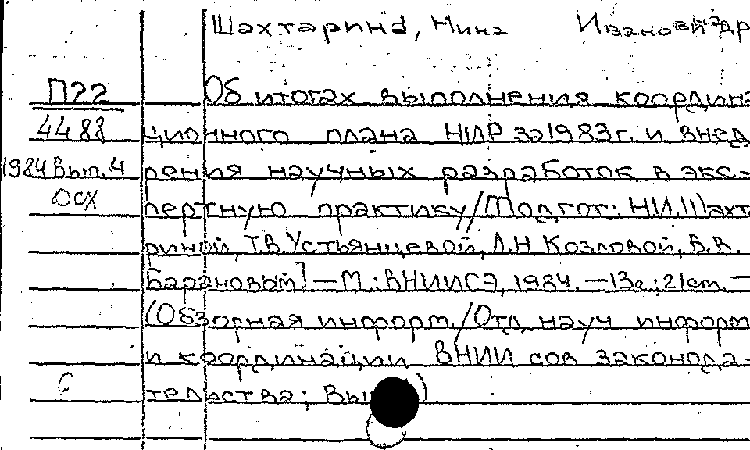 Шахтарина, Нина Ивановна др
П22 Об итогах выполнения координа
4488 ционного плана НИР за 1983г. и внед
1984 Вып. 4 рения научных разработок в экс-
ОСХ пертную практику/[Подгот: Н.И.Шахт
риной, Т.В.Устьянцевой, Л.Н Козловой, В.В.
Барановый] — М.: ВНИИСЭ, 1984. — 13с.; 21см. —
(Обзорная информ./Отд науч информ
и координации ВНИИ сов законода-
С тельства; Вып )